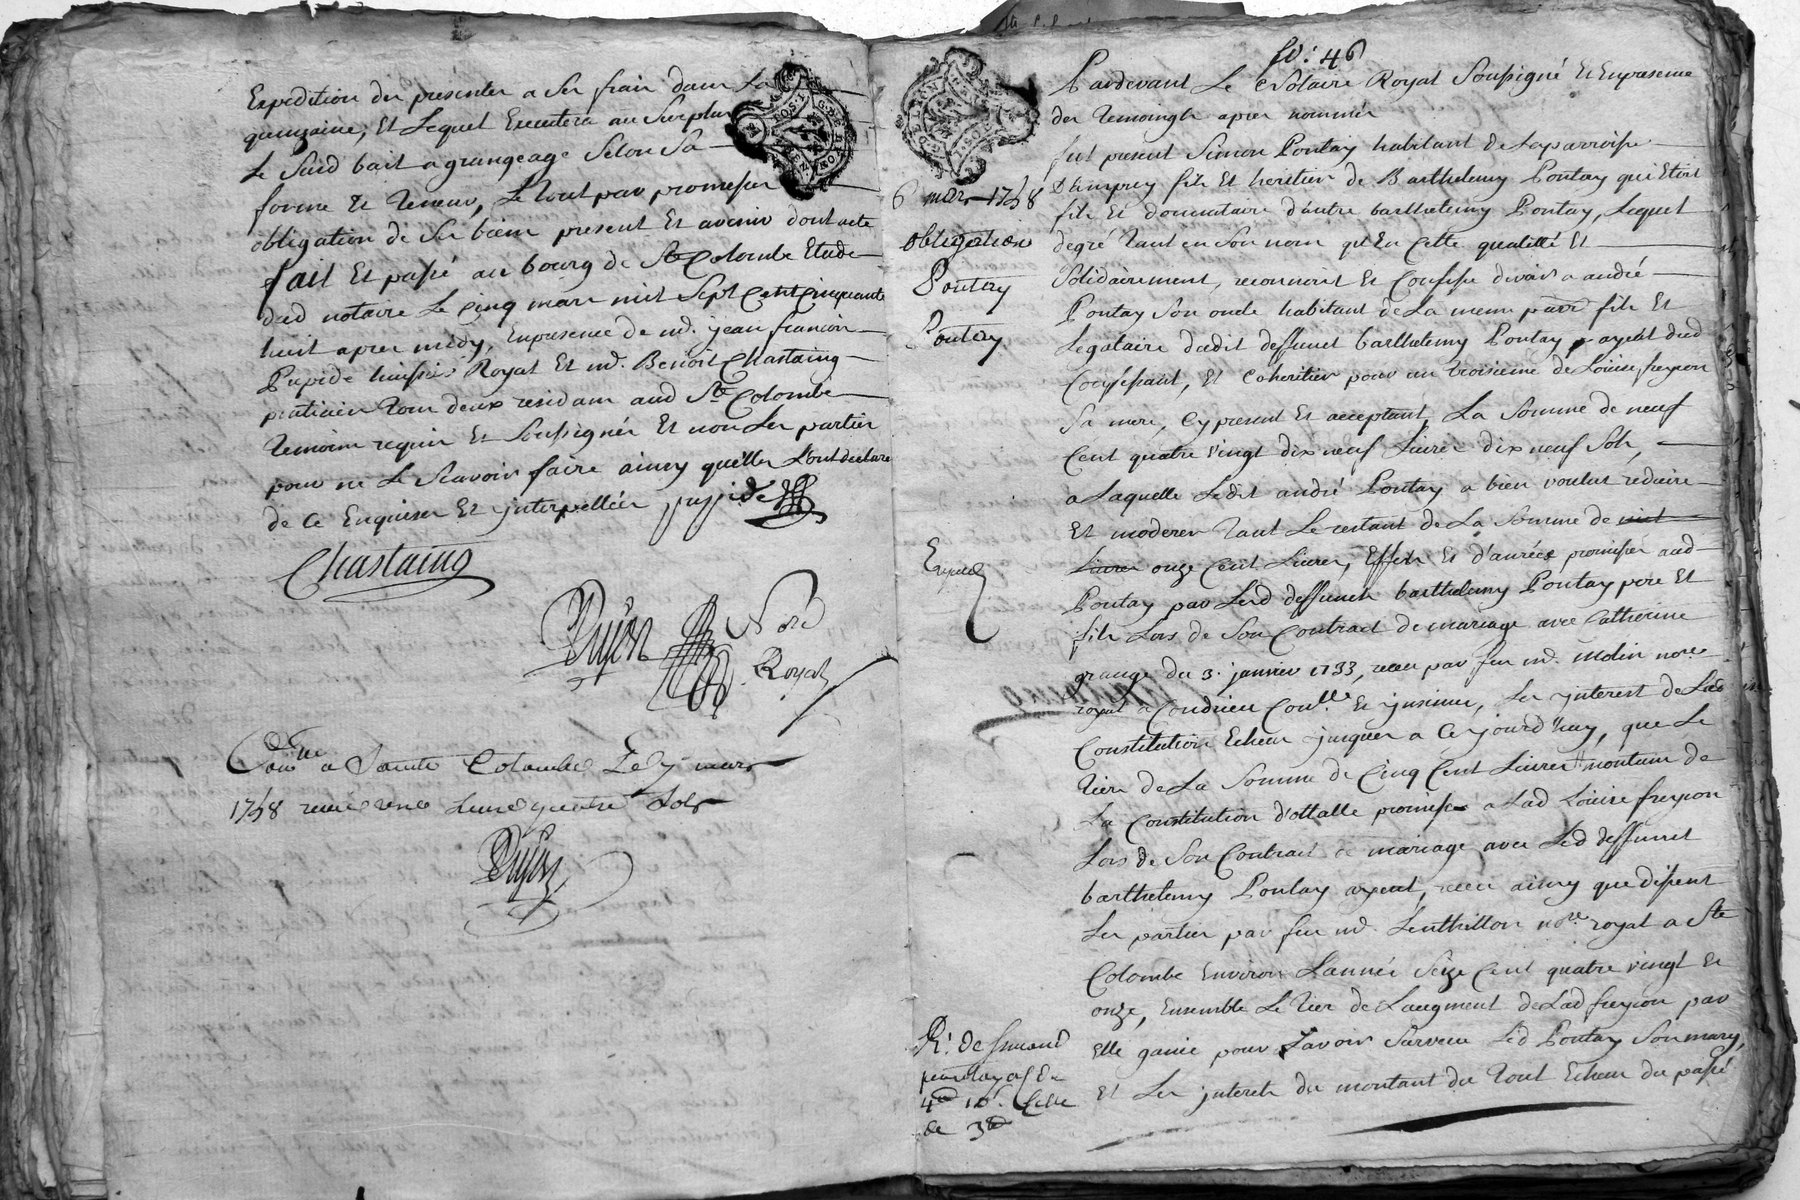 Expedition des presentes a ses frais dans la
quinzaine, Et Lequel Executera au Surplus
Le Susd bail a grangeage Selon Sa
forme Et Teneur, Le tout par promesses
obligation de Ses biens present Et avenir dont acte
fait Et passé au bourg de Ste Colombe Etude
dud notaire Le Cinq mars mil Sept Cent Cinquante
huit apres midy, En presence de md. jean francois
Pupide huissier Royal Et md. Benoist Chastaing
praticien tous deux residans aud Ste Colombe
temoins requis Et Soussignés Et non Les parties
pour ne Le Scavoir faire ainsy qu'elles L'ont declaré
de Ce Enquises Et interpellées pupide
Chastaing
Dujon Nore
Royal
Con.lle a Sainte Colombe Le 7 mars
1758 receu quatre Sols
Dujon
fo: 46
Pardevant Le Notaire Royal Soussigné Et En presence
des temoings apres nommés
fut present Simon Pontay habitant de La parroisse
D'Emprey fils Et heritier de Barthelemy Pontay qui Etoit
fils Et donnataire d'autre barthelemy Pontay, Lequel
degré tant en Son nom qu'En Cette qualitté Et
Solidairement, reconnoist Et Confesse devoir a andré
Pontay Son oncle habitant de La meme parr fils Et
Legataire dudit deffunct barthelemy Pontay, ayeul dud
Confessant, Et Coheritier pour un troisieme de Louise freyson
Sa mere, Cy present Et acceptant, La Somme de neuf
Cent quatre Vingt dix neuf Livres dix neuf Sols,
a Laquelle Ledit andré Pontay a bien voulut reduire
Et moderer tant Le restant de La Somme de
Livres onze Cent Livres, Effets Et d'anrées promises aud
Pontay par Lesd deffuncts barthelemy Pontay pere Et
fils Lors de Son Contract de mariage avec Catherine
grange du 3. janvier 1733, receu par feu md. molin nore
royal a Condrieu Con.lle Et insinué, Les interest de Lad
Constitution Echeus jusques a Cejourd'huy, que Le
tiers de La Somme de Cinq Cent Livres montant de
La Constitution d'ottalle promise a Lad Louise freyson
Lors de Son Contract de mariage avec Led deffunct
barthelemy Pontay ayeul, receu ainsy que disent
Les parties par feu md. Lenthillon nore royal a Ste
Colombe Environ L'année Seize Cent quatre vingt Et
onze, Ensemble Le tier de L'augment de Lad freyson par
Elle gaigné pour L'avoir Survecu Led Pontay Son mary,
Et Les interets du montant du tout Echeus du passé
6 mars 1758
obligation
Pontay
Pontay
Expedié
de 3d